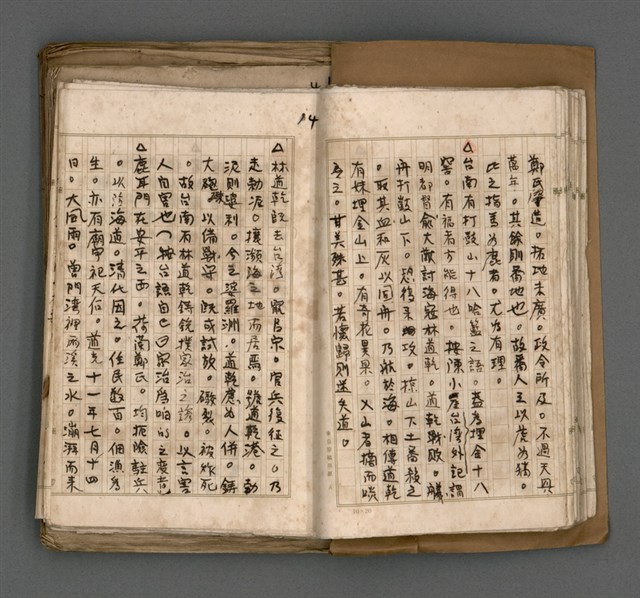 14
鄭氏肇造。拓地未廣。政令所及。不過天興
萬年。其餘則番地也。故番人之以鹿為豬。
比之指馬為鹿者。尤為有理。
△台南有打鼓山十八哈籃之語。蓋為埋金十八
窖。有福者方能得也。按陳小崖台灣外記謂
明都督俞大猷討海寇林道乾。道乾戰敗。艤
舟打鼓山下。恐復來攻。掠山下土番殺之
。取其血和灰以固舟。乃航於海。相傳道乾
有妹埋金山上。有奇花異果。入山者摘而啖
之。甘美殊甚。若懷歸則迷失道。
△林道乾既去台灣。竄呂宋。官兵復征之。乃
走勃泥。攘瀕海之地而居焉。號道乾港。勃
泥則渤利。今之婆羅洲。道乾慮為人併。鑄
大礮以備戰守。既成試放。礮裂。被炸死
。故台南有林道乾鑄銃撲家治之語。以言害
人自害也。按台語自己曰家治
△鹿耳門在安平之西。荷蘭鄭氏。均扼險駐兵
。以防海道。清代因之。住民數百。佃漁為
生。亦有廟宇祀天后。道光十一年七月十四
日。大風雨。曾門灣裡兩溪之水。澎湃而來